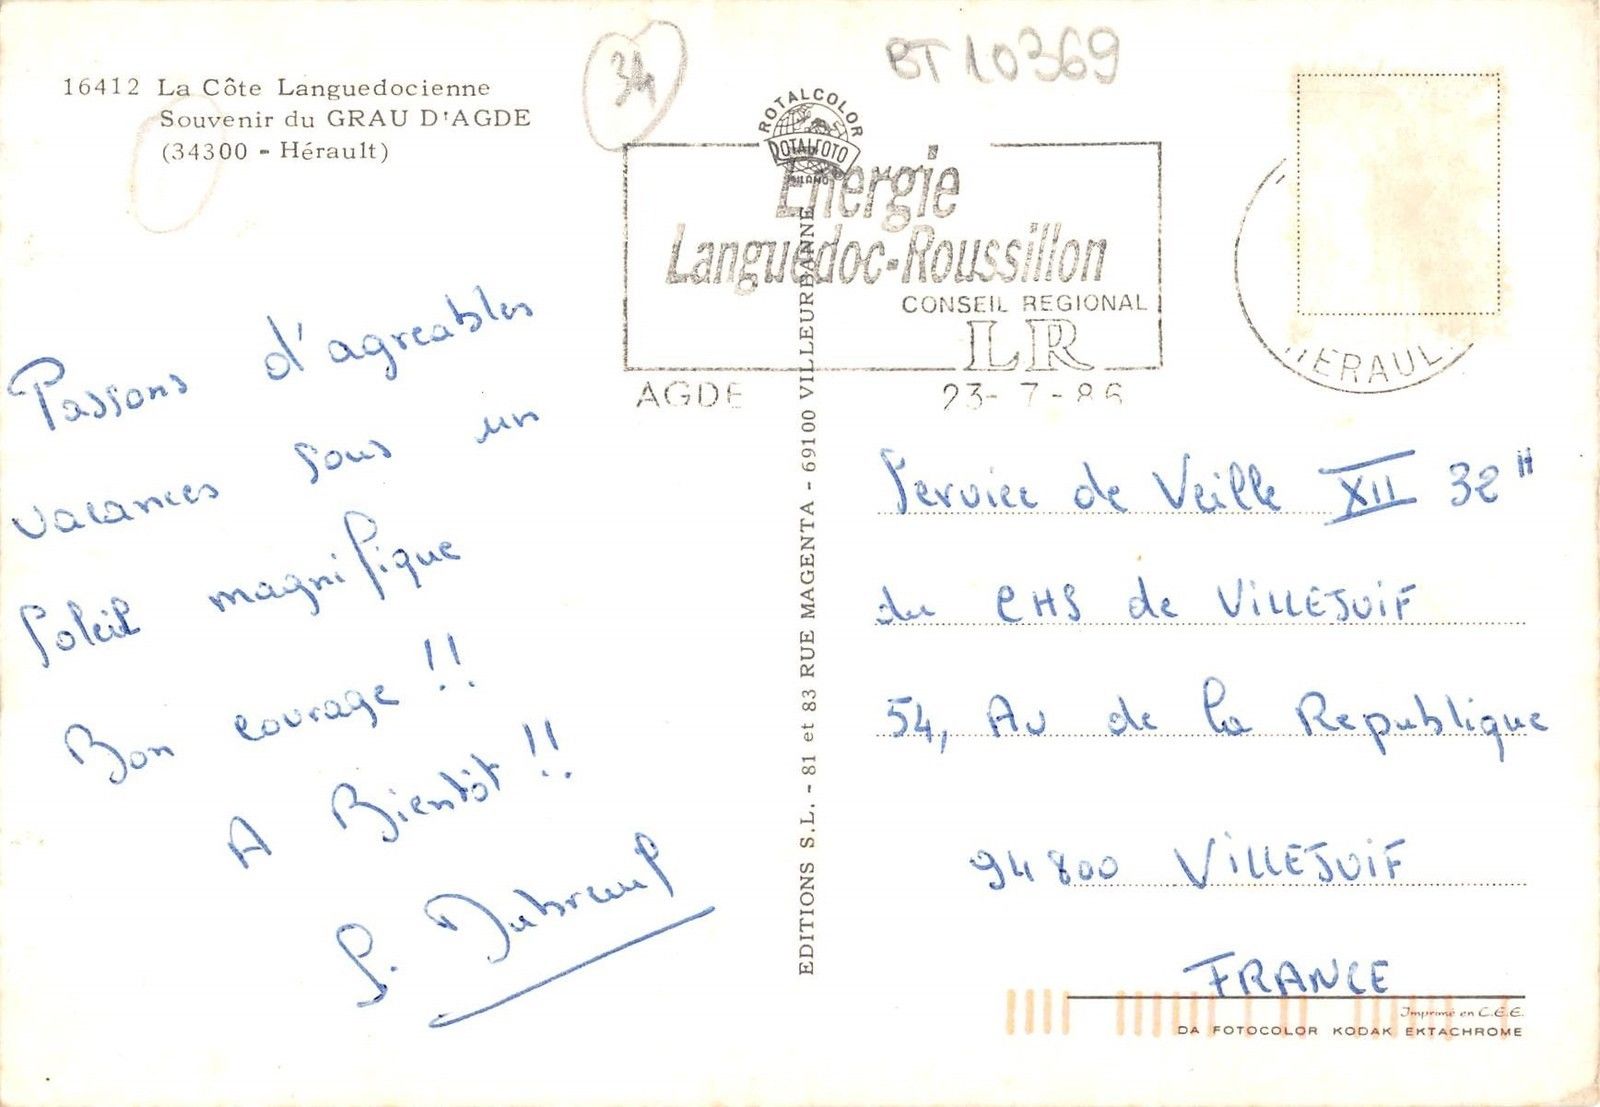 34
BT10369
16412 La Côte Languedocienne
Souvenir du GRAU D'AGDE
(34300 - Hérault)
ROTALCOLOR
ROTALFOTO
MILANO
Energie
Languedoc-Roussillon
CONSEIL REGIONAL
LR
AGDE 23-7-86
HERAUL
Passons d'agreables
vacances sous un
soleil magnifique
Bon courage !!
A Bientôt !!
S. Dubreuil
EDITIONS S.L. - 81 et 83 RUE MAGENTA - 69100 VILLEURBANNE
Service de Veille XII 32 H
du CHS de VILLEJUIF
54, Av de la Republique
94800 VILLEJUIF
FRANCE
Imprimé en C.E.E.
DA FOTOCOLOR KODAK EKTACHROME